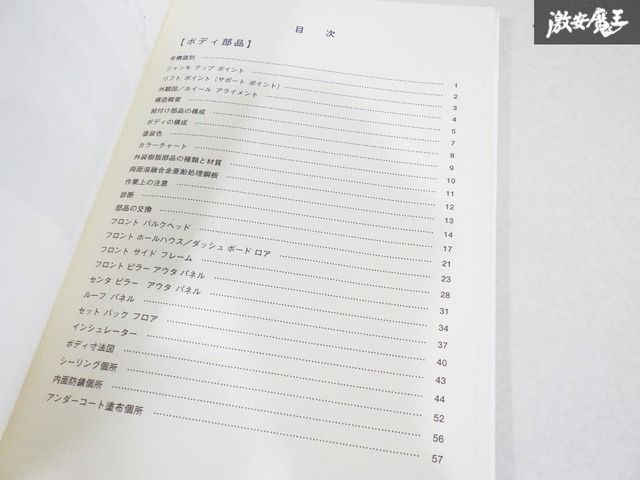 激安魔王
目次
【ボディ部品】
号機識別 1
ジャッキ アップ ポイント 2
リフト ポイント (サポート ポイント) 3
外観図／ホイール アライメント 4
構造概要 5
組付け部品の構成 7
ボディの構成 8
塗装色 9
カラーチャート 10
外装樹脂部品の種類と材質 11
両面溶融合金亜鉛処理鋼板 12
作業上の注意 13
診断 14
部品の交換 17
フロント バルクヘッド 21
フロント ホールハウス／ダッシュ ボード ロア 23
フロント サイド フレーム 28
フロント ピラー アウタ パネル 31
センタ ピラー アウタ パネル 34
ルーフ パネル 37
セット バック フロア 40
インシュレーター 43
ボディ寸法図 44
シーリング個所 52
内面防錆個所 56
アンダーコート塗布個所 57